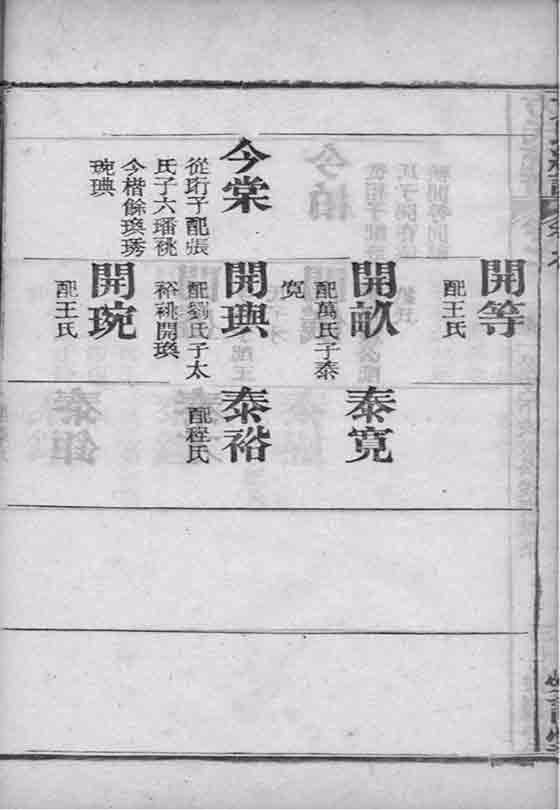 今棠
從珩子配張
氏子六璠祧
今楷餘瑍琇
琬琠
開等
配王氏
開畝
配萬氏子泰
寬
開琠
配劉氏子太
裕祧開瑍
開琬
配王氏
泰寬
泰裕
配程氏